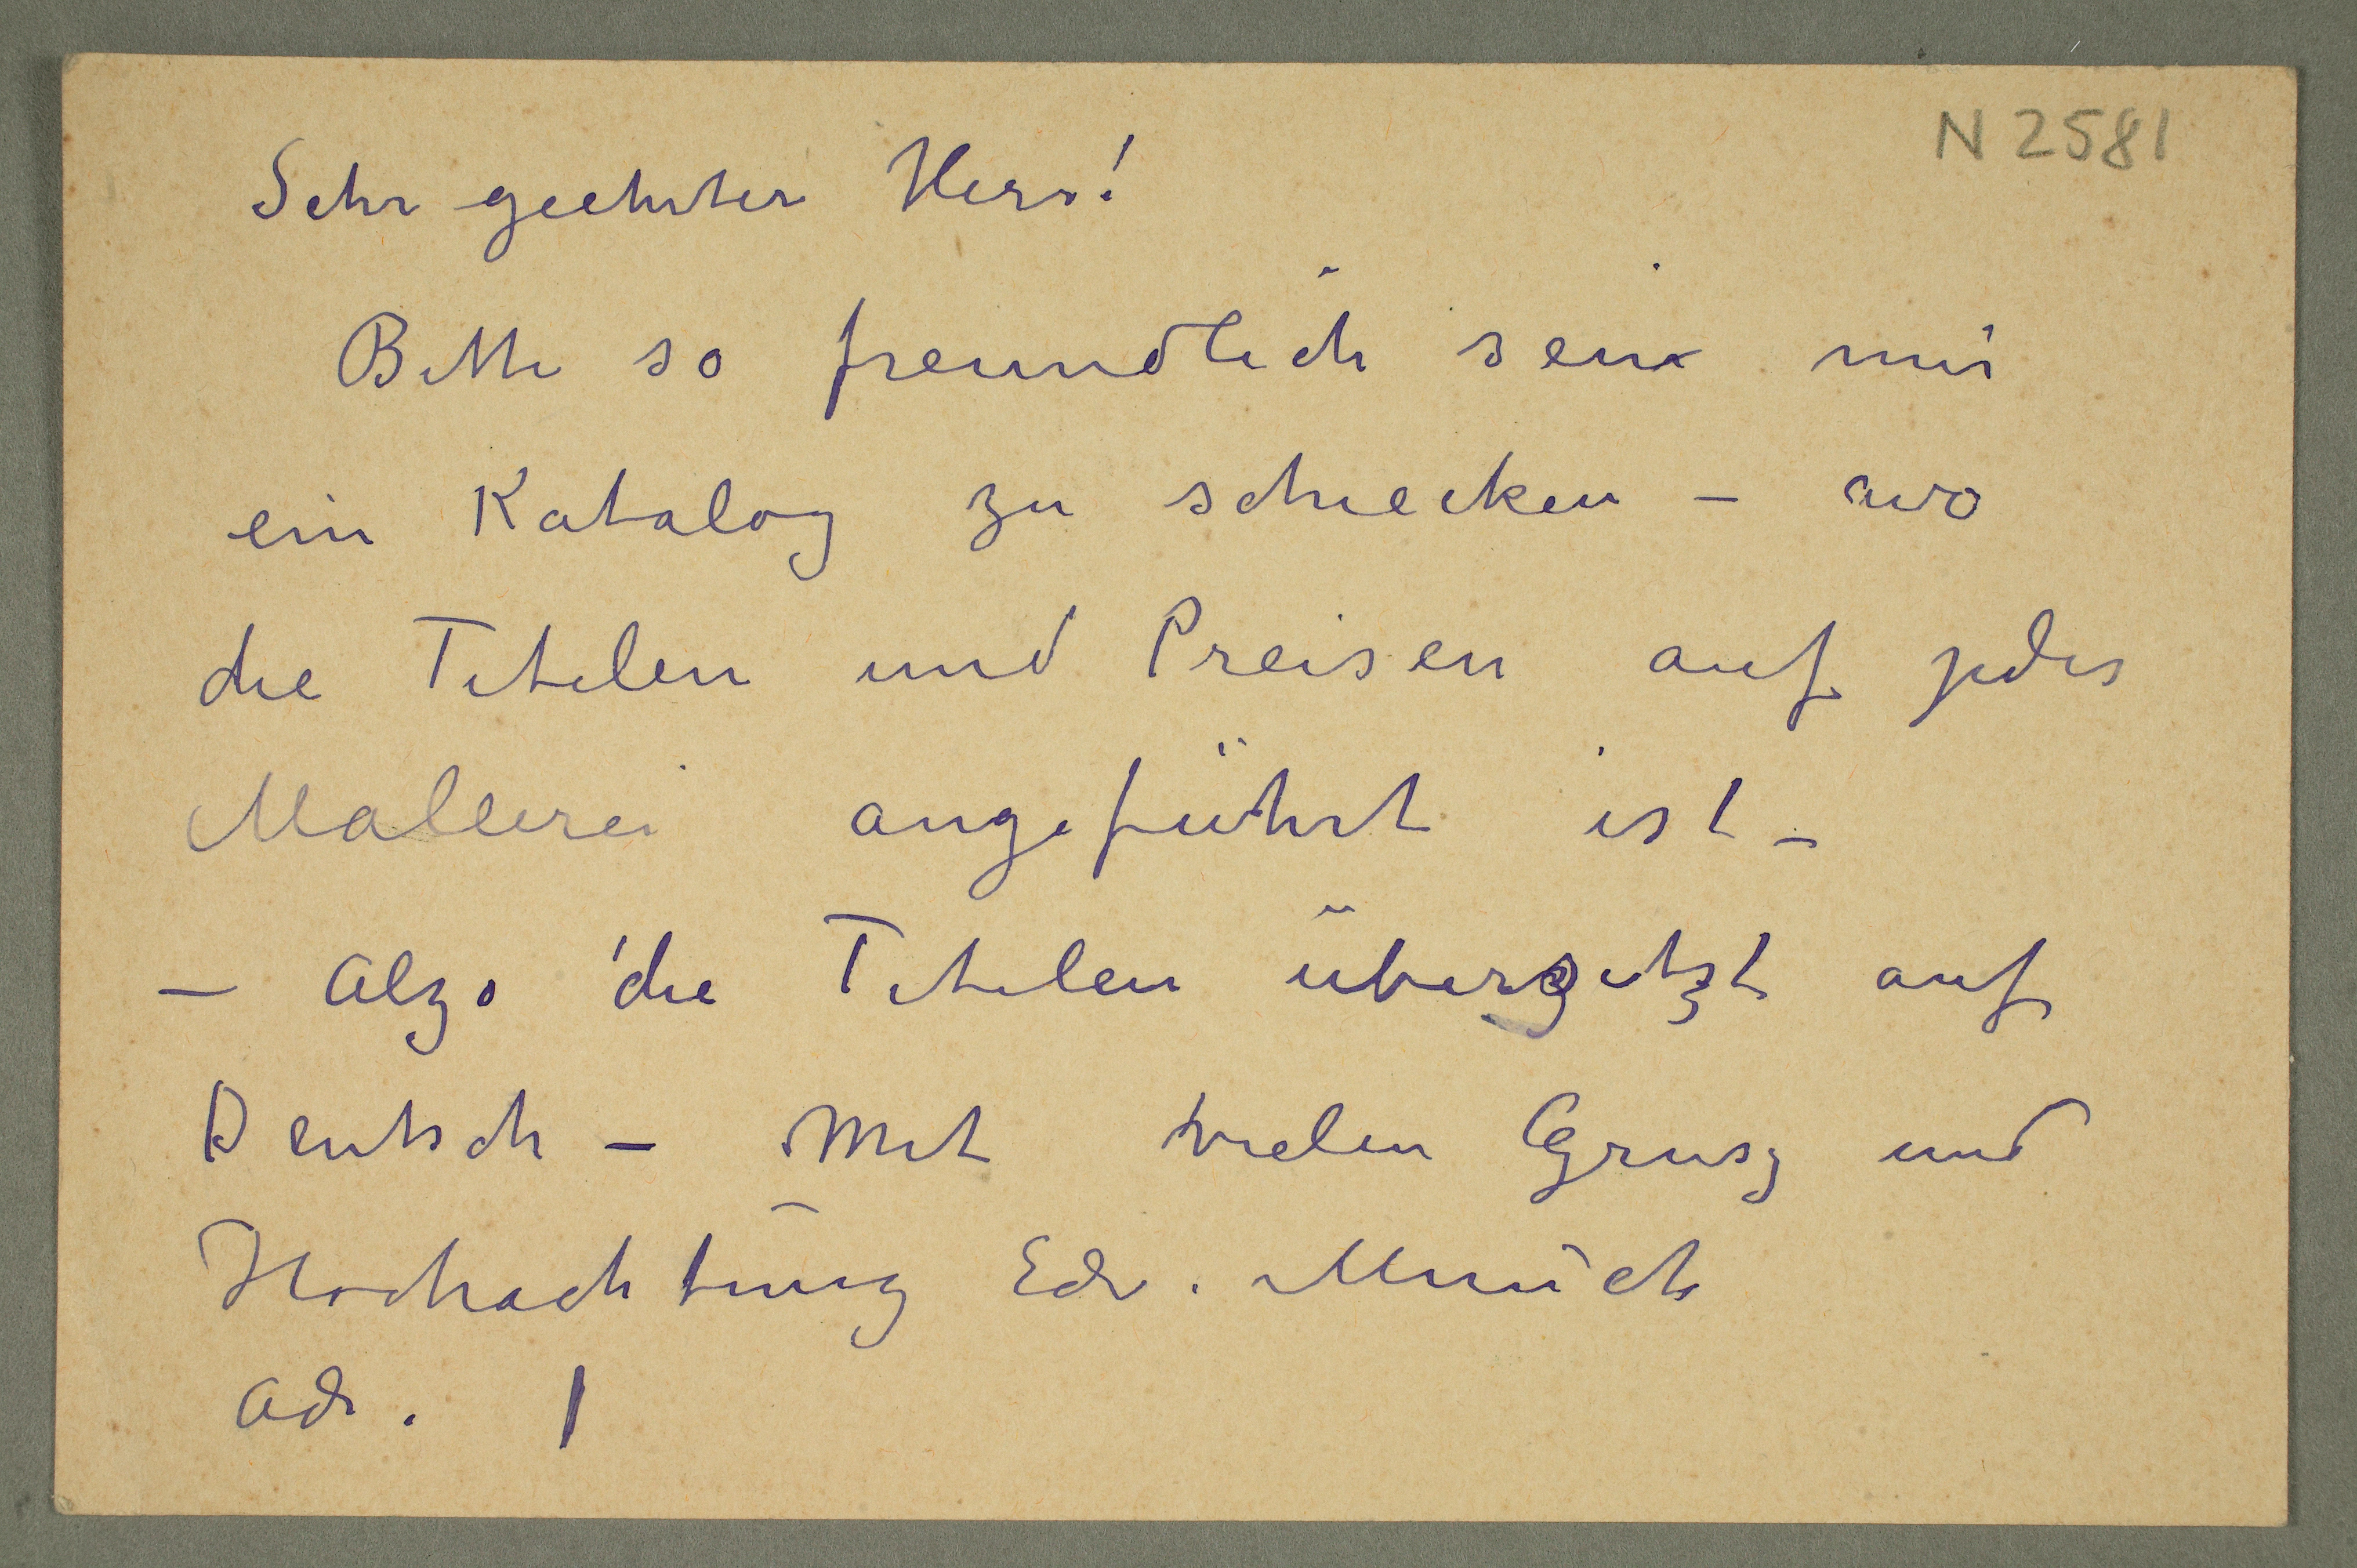 N 2581
Sehr geehrter Herr!
Bitte so freundlich sein mir
ein Katalog zu schiecken – wo
die Titelen und Preisen auf jedes
Mallerei angeführt ist –
– Alzo die Titelen überzetzt auf
Deutsch – Mit vielen Grusz und
Hochachtung Edv. Munch
Adr.